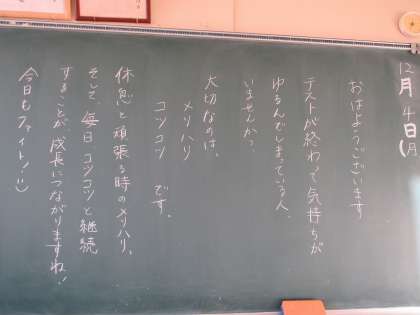 12月4日(月
おはようございます
テストが終わって気持ちが
ゆるんでしまっている人、
いませんか？
大切なのは、
メリハリ
コツコツ です。
休息と頑張る時のメリハリ、
そして、毎日コツコツと継続
することが、成長につながりますね！
今日もファイト！:)